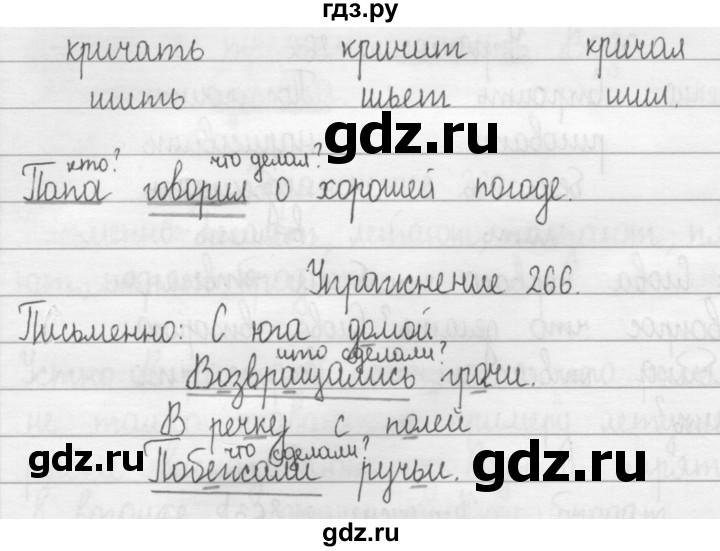 гдз.ру
кричать кричит кричал
шить шьет шил.
кто? что делал?
Папа говорил о хорошей погоде.
gdz.ru gdz.ru
Упражнение 266.
Письменно: С юга домой
что сделали?
Возвращались грачи.
В речку с полей
что сделали?
Побежали ручьи.
gdz.ru gdz.ru
gdz.ru